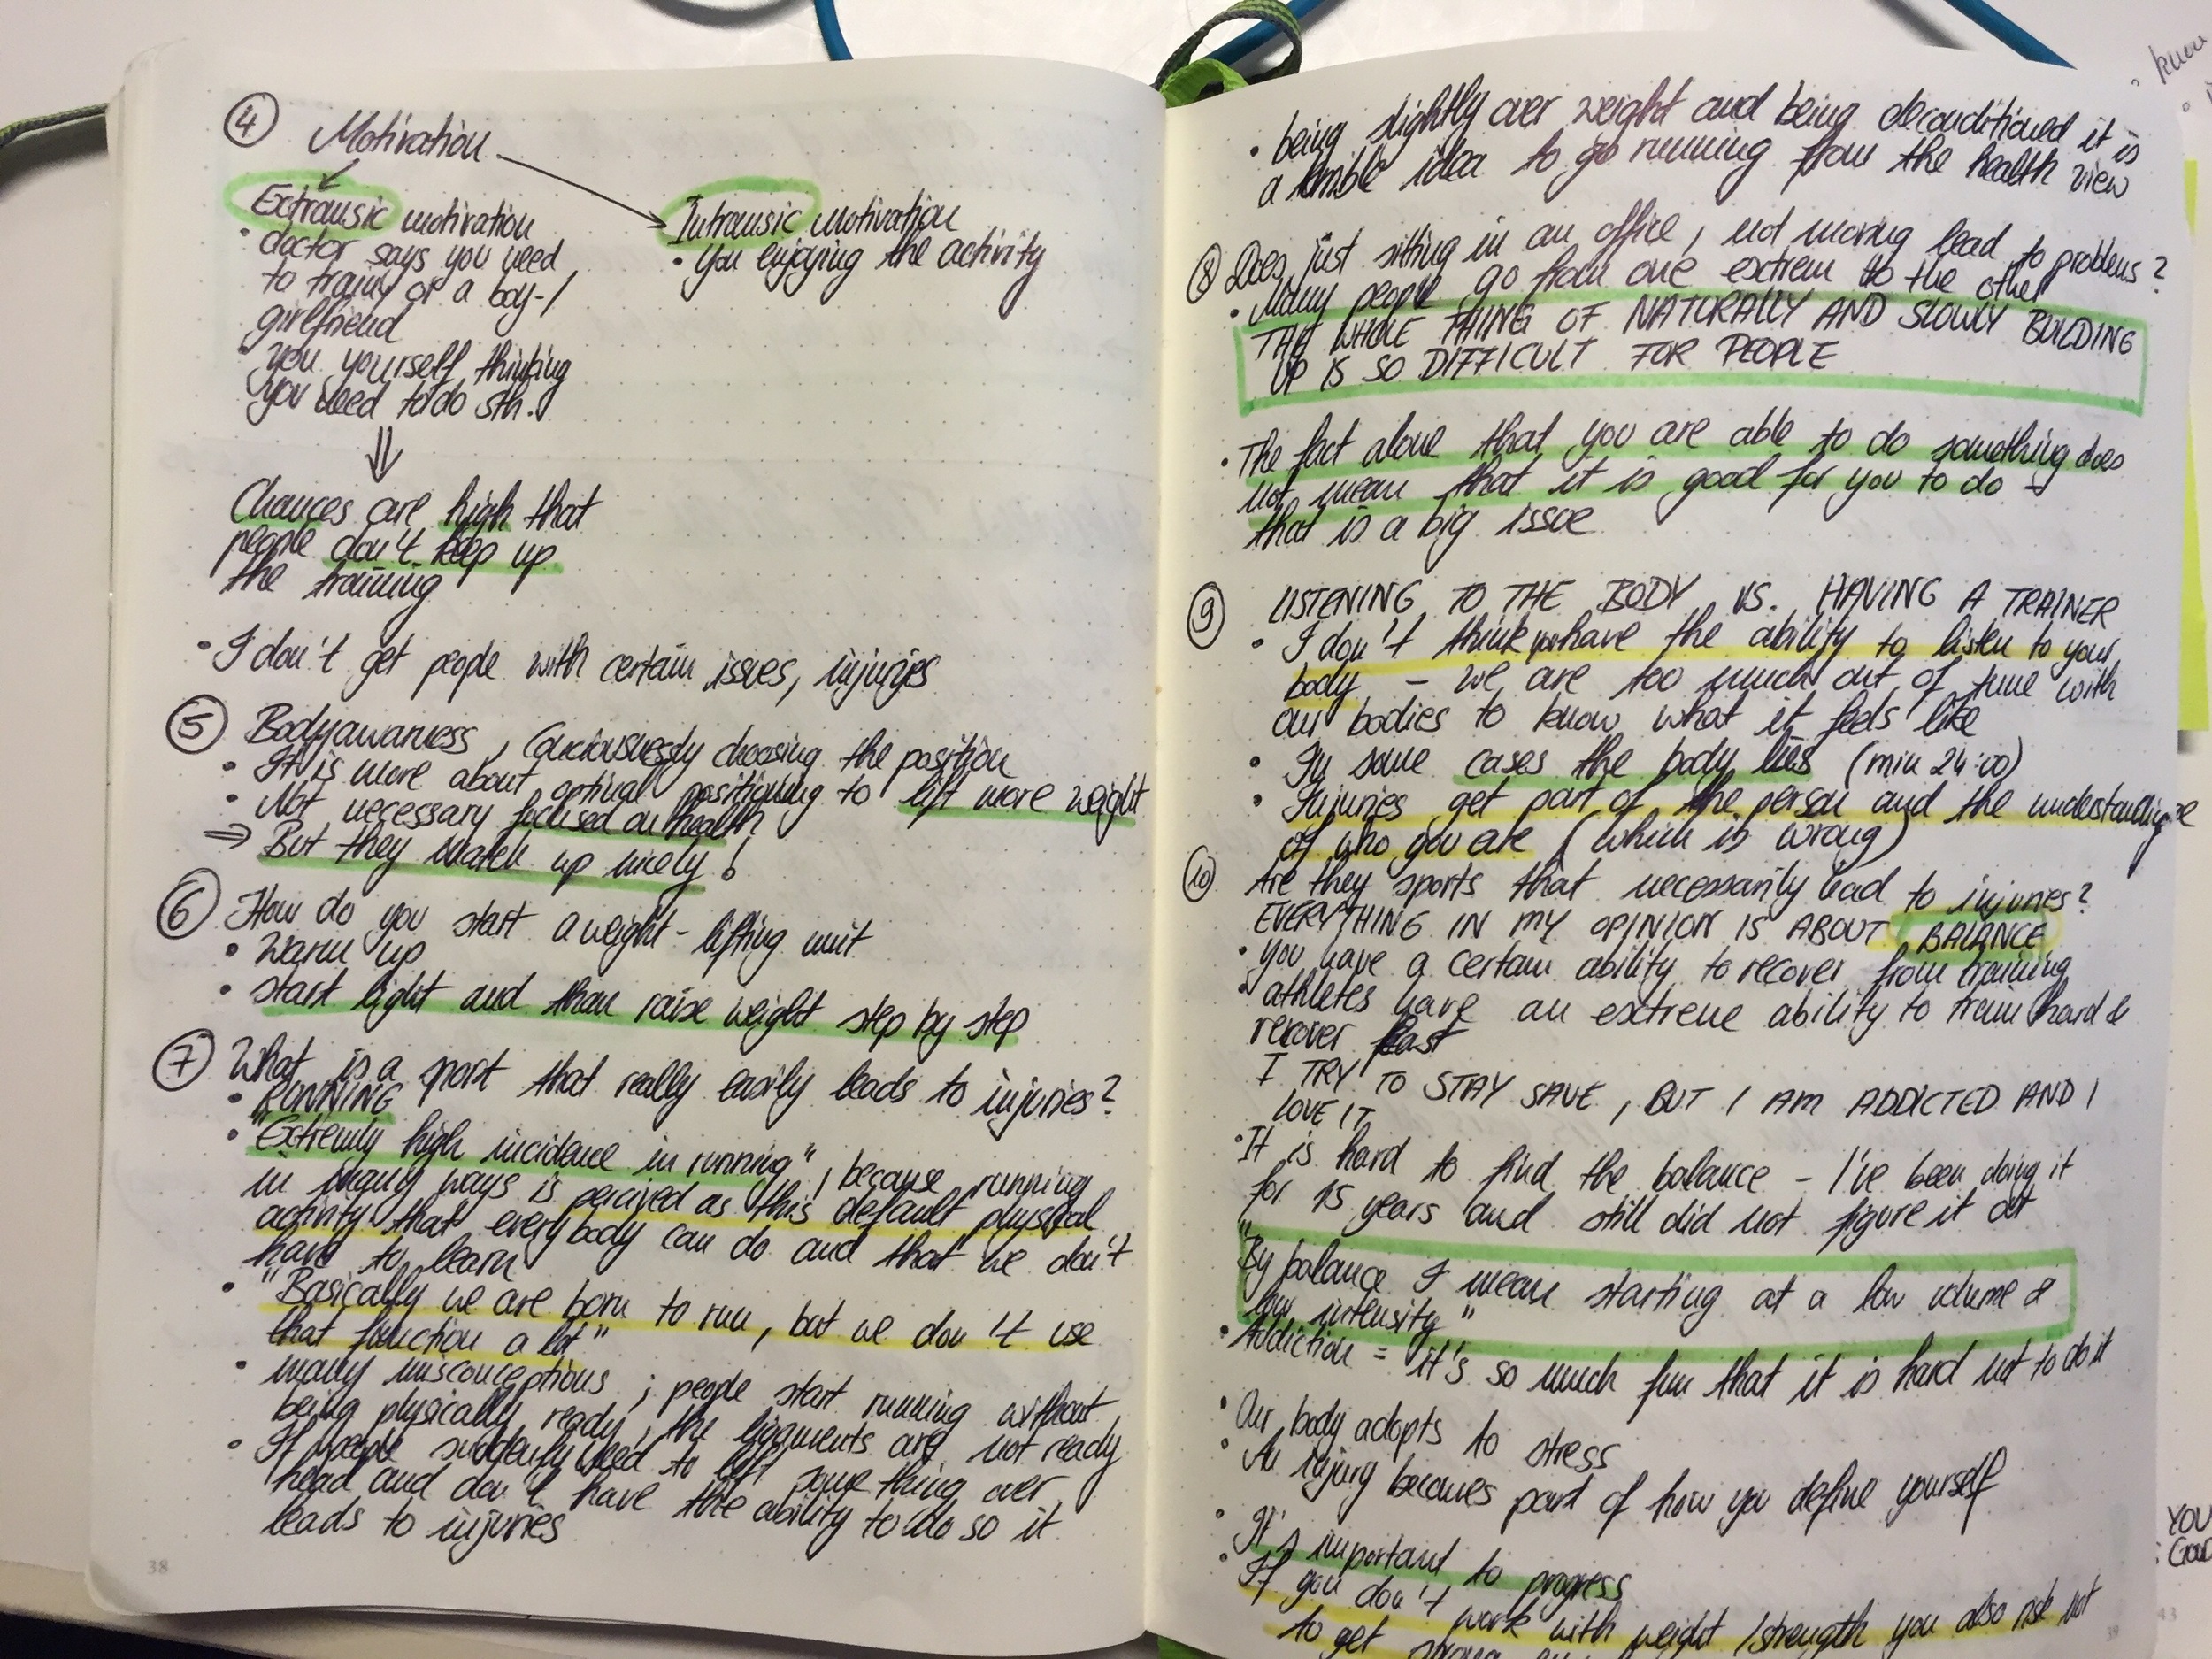 ④ Motivation
Extransic motivation
• doctor says you need
to train, or a boy-/
girlfriend
• you yourself thinking
you need to do sth.
⇓
Chances are high that
people don't keep up
the training
Intransic motivation
• You enjoying the activity
• I don't get people with certain issues, injuries
⑤ Bodyawarness, Conciousnessly choosing the position
• It is more about optimal positioning to lift more weight
• Not necessary focused on health
⇒ But they match up nicely!
⑥ How do you start a weight-lifting unit
• Warm up
• start light and than raise weight step by step
⑦ What is a sport that really easily leads to injuries?
• RUNNING
• "Extremly high incidence in running", because running
in many ways is percived as this default physical
activity that everybody can do and that we don't
have to learn
• "Basically we are born to run, but we don't use
that function a lot"
• many misconceptions ; people start running without
being physically ready, the ligaments are not ready
• If people suddenly need to lift something over
head and don't have the ability to do so it
leads to injuries
38
• being slightly over weight and being deconditioned it is
a terrible idea to go running from the health view
⑧ Does just sitting in an office, not moving lead to problems?
• Many people go from one extrem to the other
THE WHOLE THING OF NATURALLY AND SLOWLY BUILDING
UP IS SO DIFFICULT FOR PEOPLE
• The fact alone that you are able to do something does
not mean that it is good for you to do -
that is a big issue
⑨ LISTENING TO THE BODY VS. HAVING A TRAINER
• I don't think you have the ability to listen to your
body - we are too much out of tune with
our bodies to know what it feels like
• In some cases the body lies (min 24:00)
• Injuries get part of the person and the understanding
of who you are (which is wrong)
⑩ Are they sports that necessarily lead to injuries?
EVERYTHING IN MY OPINION IS ABOUT BALANCE
• you have a certain ability to recover from training
• athletes have an extreme ability to train hard &
recover fast
I TRY TO STAY SAVE, BUT I AM ADDICTED AND I
LOVE IT
• It is hard to find the balance - I've been doing it
for 15 years and still did not figure it out
"By balance I mean starting at a low volume &
low intensity"
• Addiction = it's so much fun that it is hard not to do it
• Our body adopts to stress
• An injury becomes part of how you define yourself
• It's important to progress
• If you don't work with weight/strength you also risk not
to get strong
39
know
YOU
43